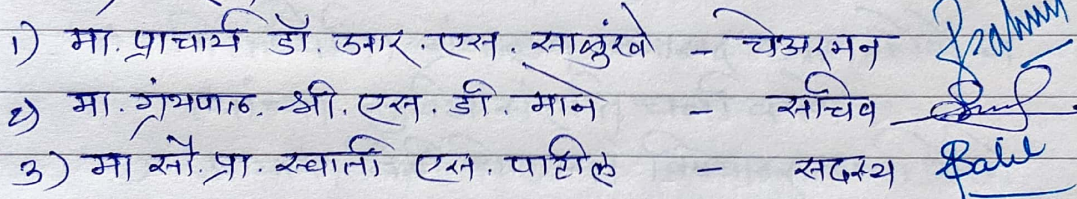 १) मा. प्राचार्य डॉ. आर. एस. साळुंखे - चेअरमन
२) मा. ग्रंथपाल. श्री. एस. डी. माने - सचिव
३) मा सौ. प्रा. स्वाती एस. पाटील - सदस्य